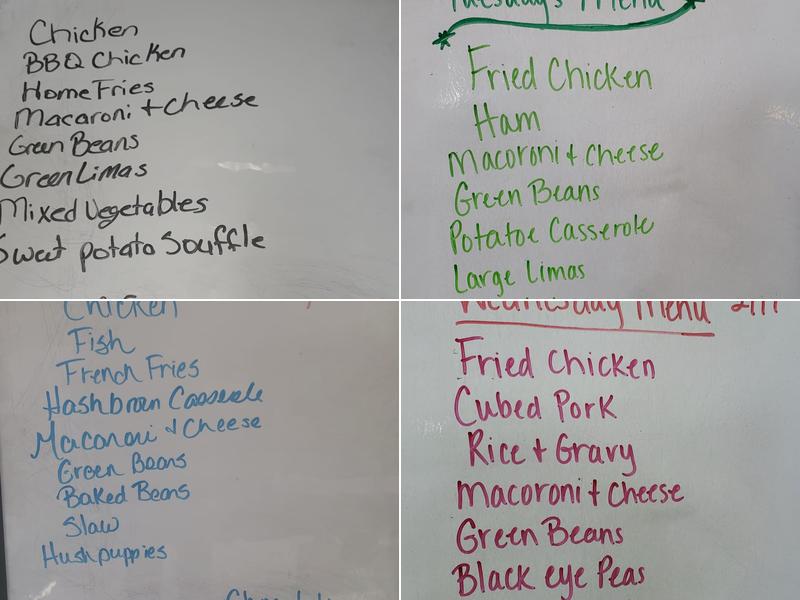 Chicken
BBQ Chicken
Home Fries
Macaroni + Cheese
Green Beans
Green Limas
Mixed Vegetables
Sweet potato Souffle
Tuesday's Menu
Fried Chicken
Ham
Macoroni + Cheese
Green Beans
Potatoe Casserole
Large Limas
Chicken
Fish
French Fries
Hashbrown Casserole
Macaroni + Cheese
Green Beans
Baked Beans
Slaw
Hushpuppies
Wednesday Menu
Fried Chicken
Cubed Pork
Rice + Gravy
Macoroni + Cheese
Green Beans
Black eye Peas